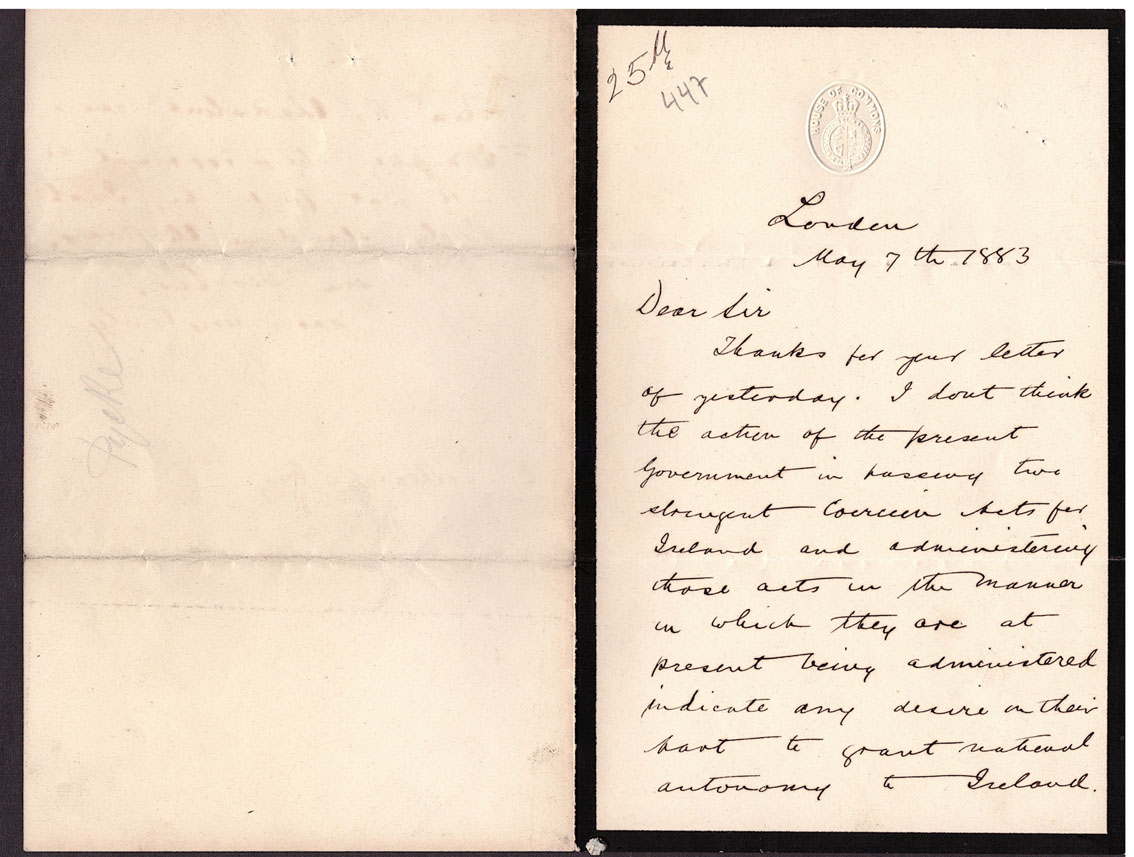 25
447
HOUSE OF COMMONS
London
May 7th 1883
Dear Sir
Thanks for your letter
of yesterday. I dont think
the action of the present
Government in passing two
stringent Coercion Acts for
Ireland and administering
those acts in the manner
in which they are at
present being administered
indicate any desire on their
part to grant national
autonomy to Ireland.